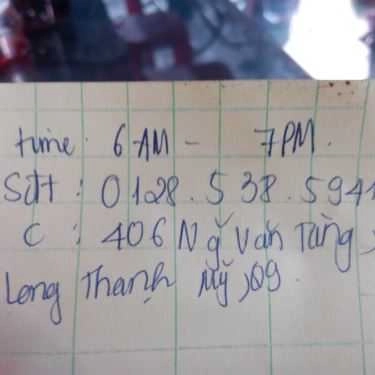 time: 6 AM - 7 PM.
Sđt: 0128.538.5941
C: 406 Ng̃ Văn Tăng,
Long Thạnh Mỹ, Q9.